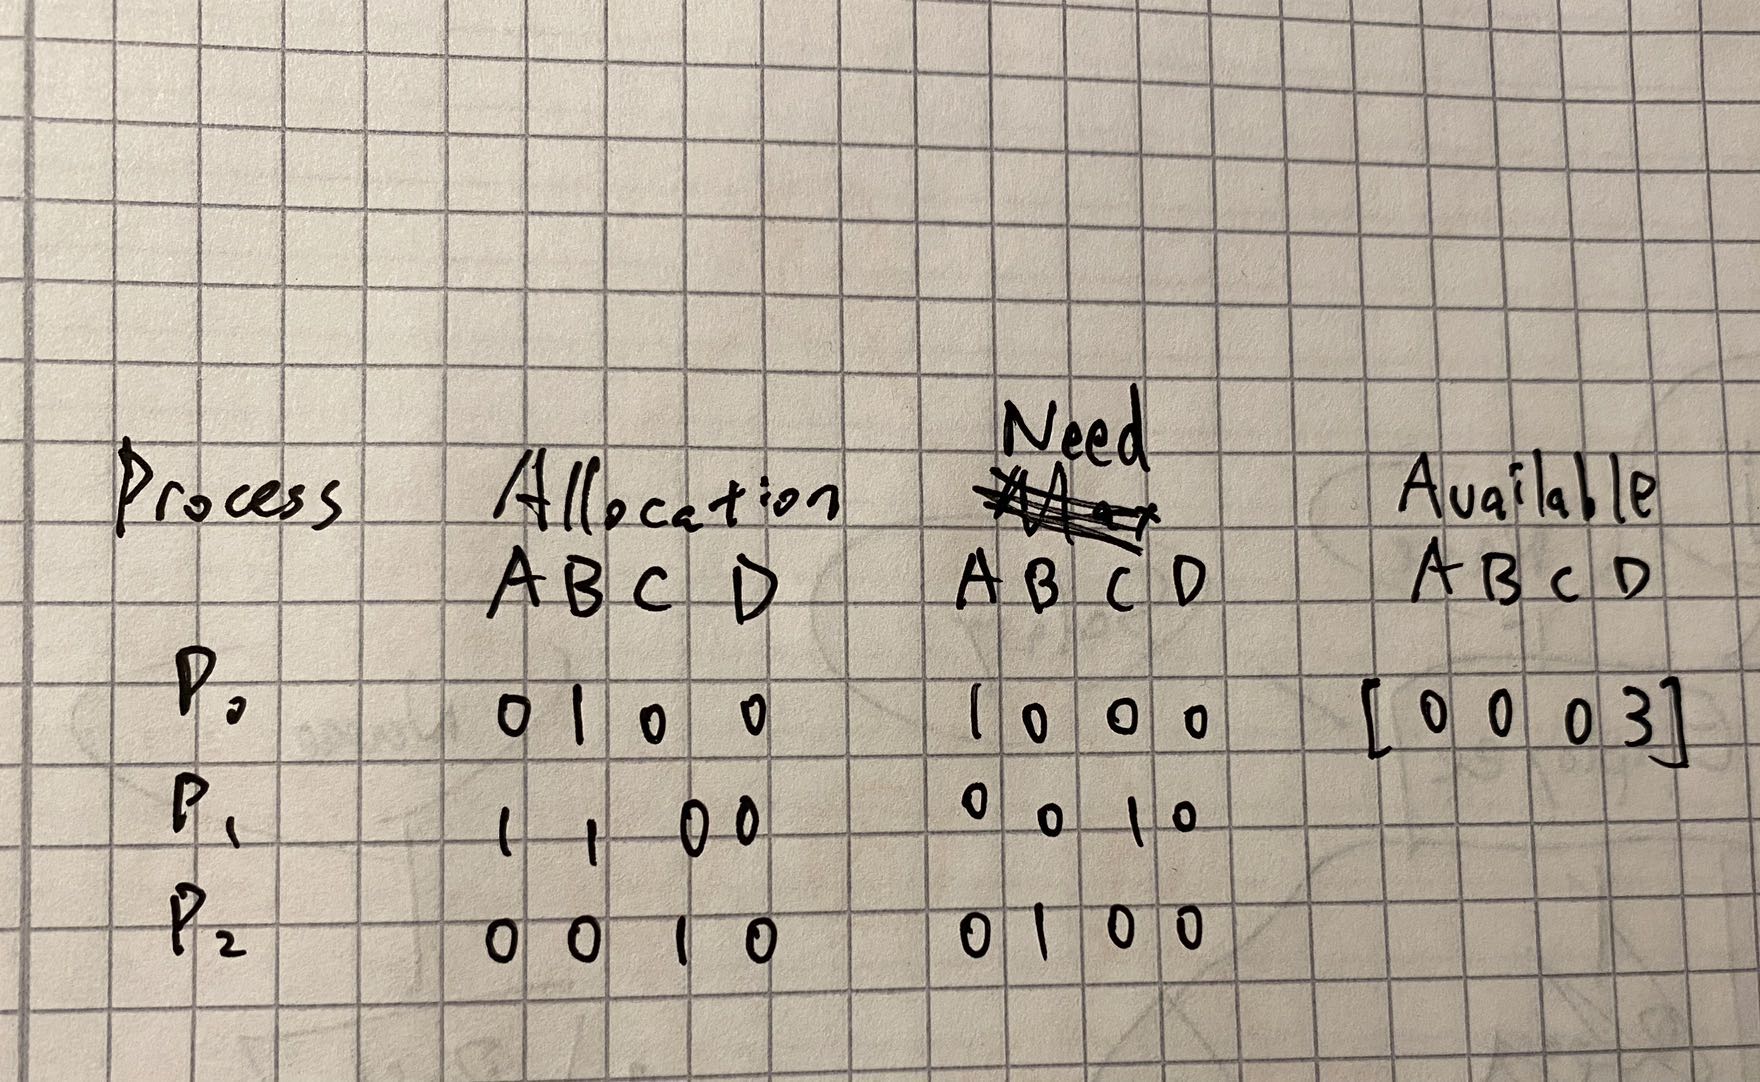 Need
Process Allocation Available
A B C D A B C D A B C D
P0 0 1 0 0 1 0 0 0 [0 0 0 3]
P1 1 1 0 0 0 0 1 0
P2 0 0 1 0 0 1 0 0